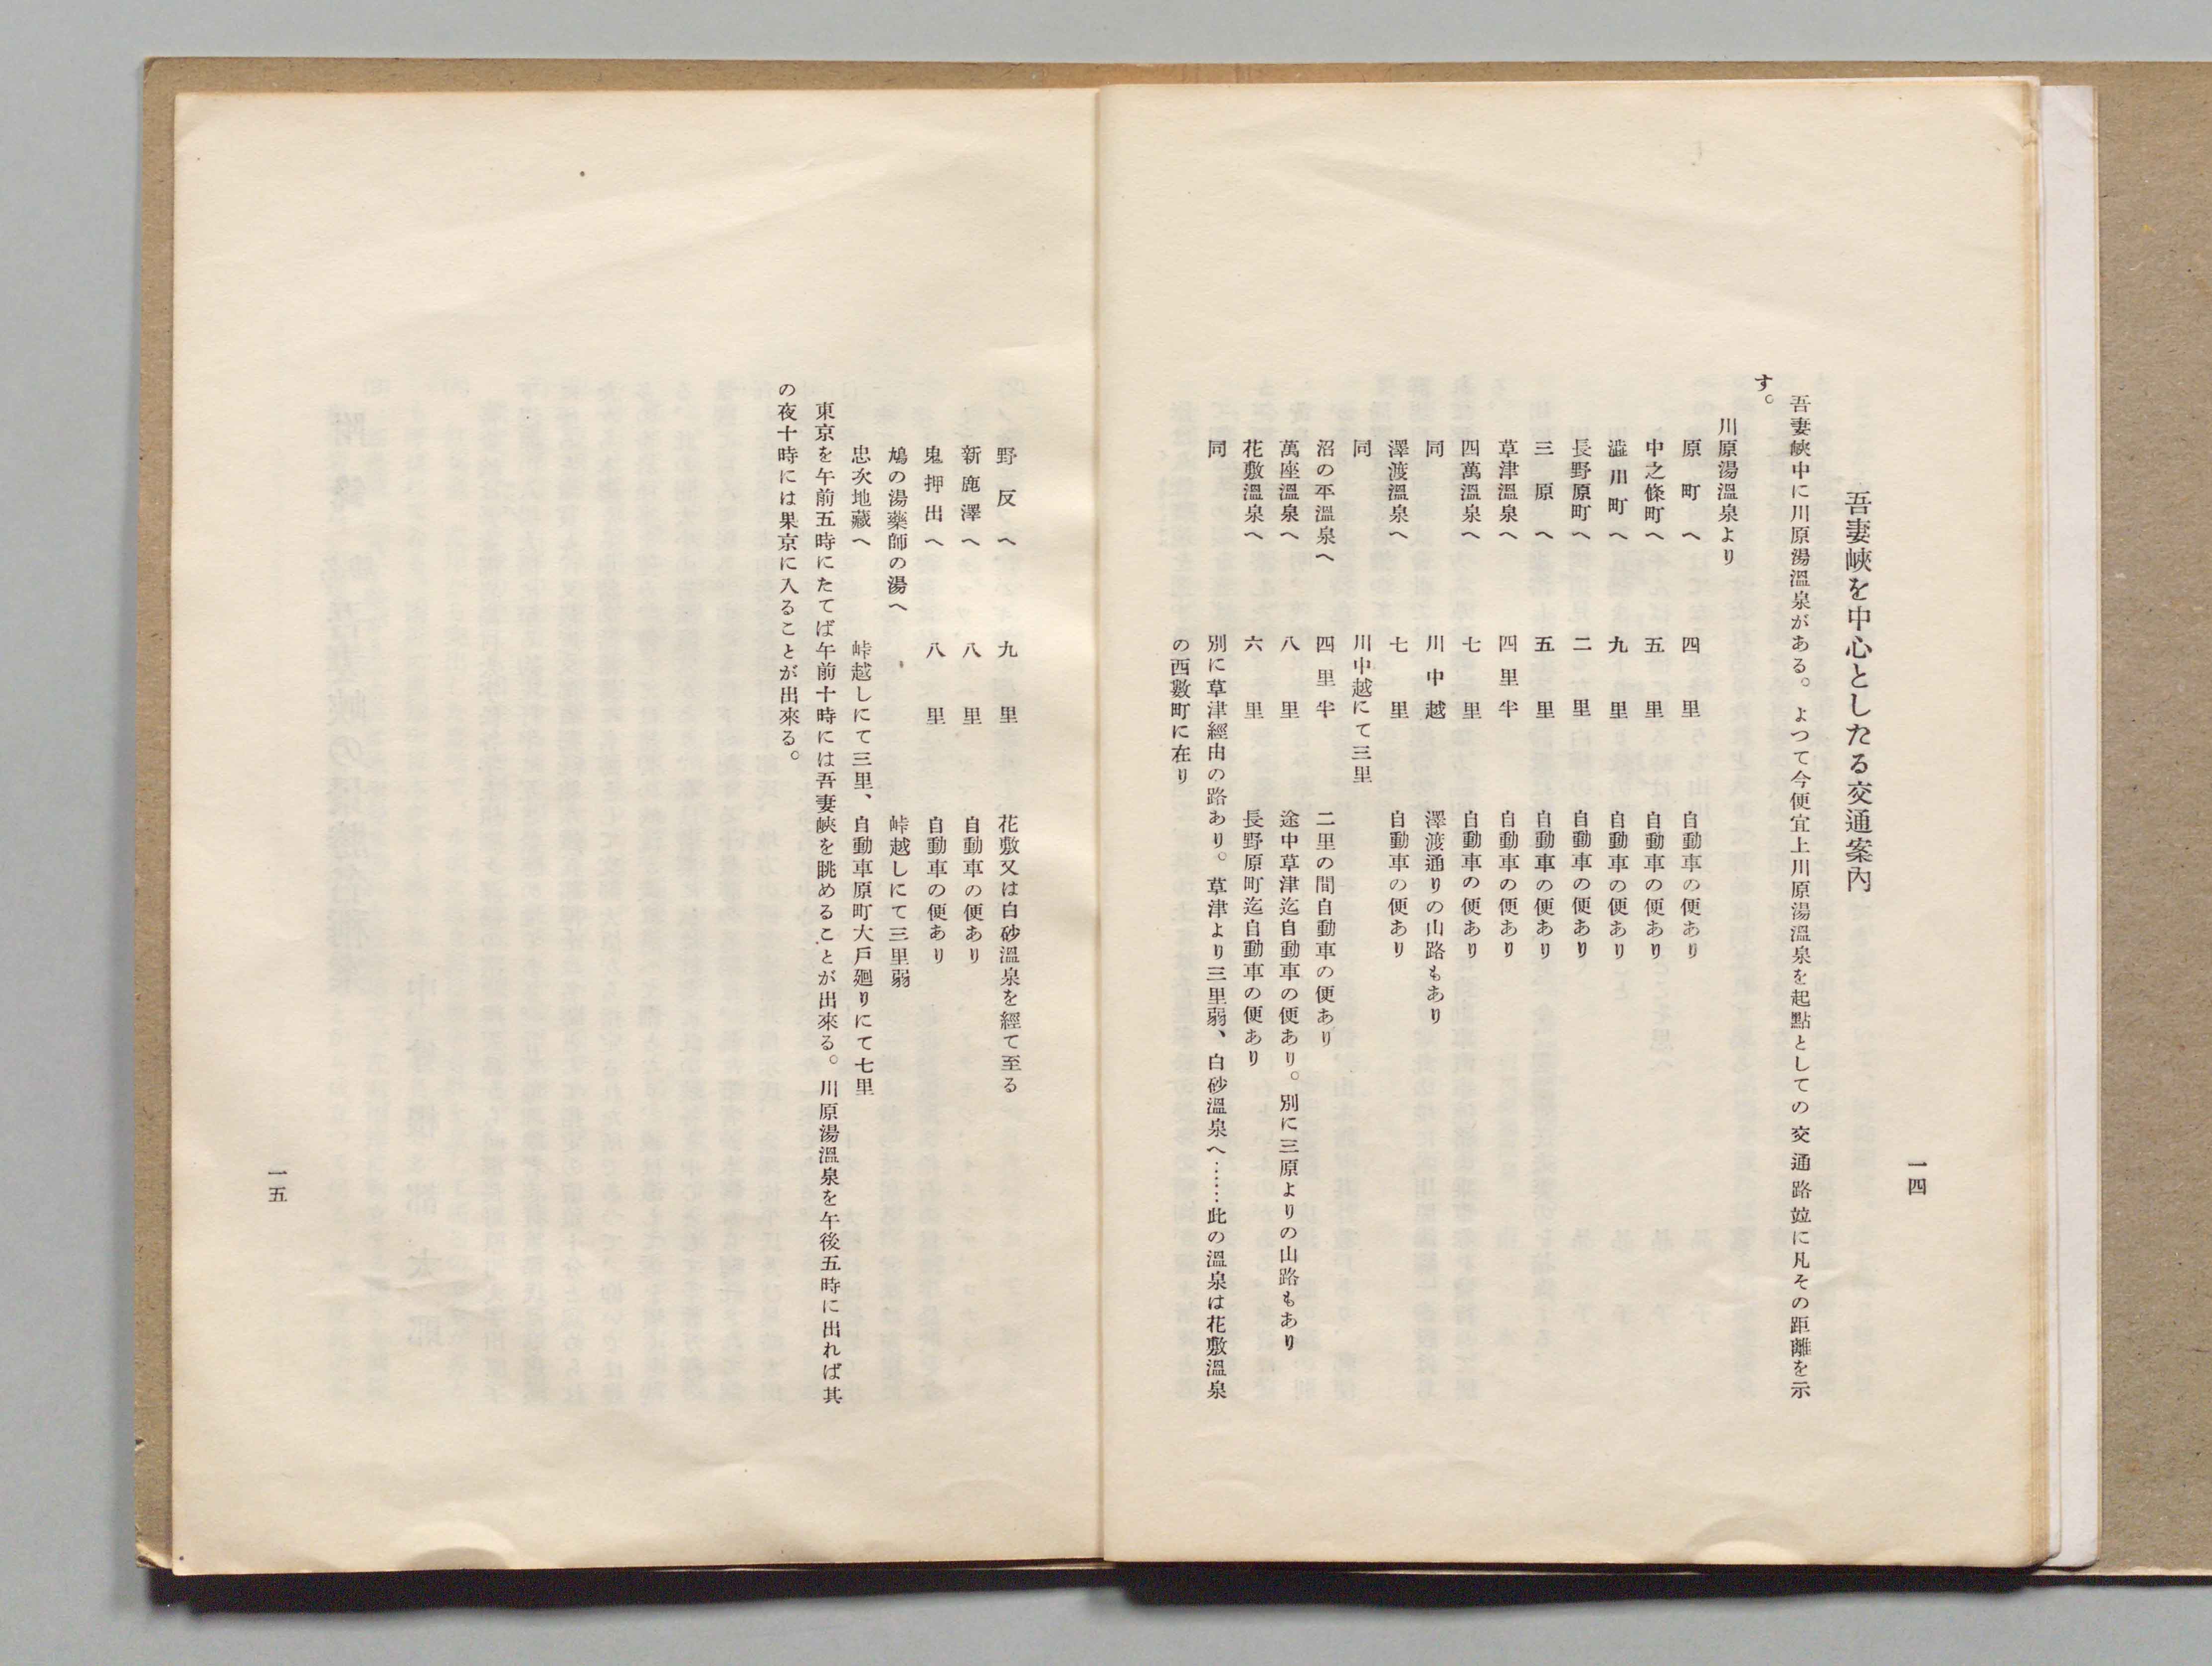 吾妻峽を中心としたる交通案內
吾妻峽中に川原湯溫泉がある。よつて今便宜上川原湯溫泉を起點としての交通路竝に凡その距離を示
す。
川原湯溫泉より
原町へ　四里　自動車の便あり
中之條町へ　五里　自動車の便あり
澁川町へ　九里　自動車の便あり
長野原町へ　二里　自動車の便あり
三原へ　五里　自動車の便あり
草津溫泉へ　四里半　自動車の便あり
四萬溫泉へ　七里　自動車の便あり
同　川中越　澤渡通りの山路もあり
澤渡溫泉へ　七里　自動車の便あり
同　川中越にて三里
沼の平溫泉へ　四里半　二里の間自動車の便あり
萬座溫泉へ　八里　途中草津迄自動車の便あり。別に三原よりの山路もあり
花敷溫泉へ　六里　長野原町迄自動車の便あり
同　別に草津經由の路あり。草津より三里弱、白砂溫泉へ……此の溫泉は花敷溫泉
の西數町に在り
一四
野反へ　九里　花敷又は白砂溫泉を經て至る
新鹿澤へ　八里　自動車の便あり
鬼押出へ　八里　自動車の便あり
鳩の湯藥師の湯へ　峠越しにて三里弱
忠次地藏へ　峠越しにて三里、自動車原町大戶廻りにて七里
東京を午前五時にたてば午前十時には吾妻峽を眺めることが出來る。川原湯溫泉を午後五時に出れば其
の夜十時には果京に入ることが出來る。
一五